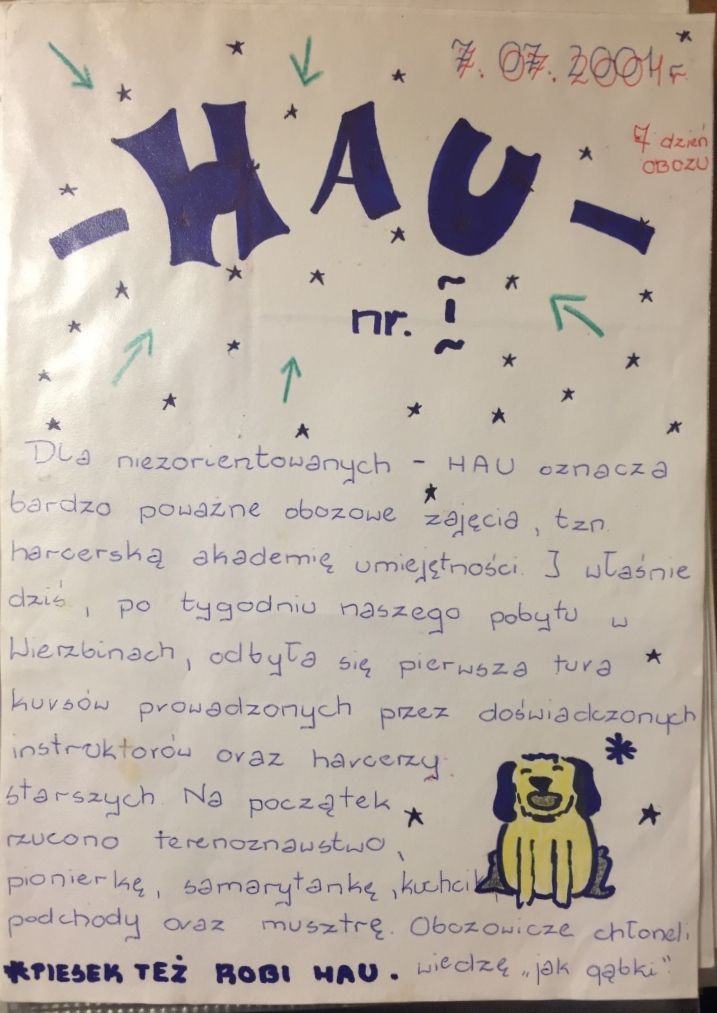 7. 07. 2004 r.
7 dzień
OBOZU
- HAU -
nr. I
Dla niezorientowanych - HAU oznacza
bardzo poważne obozowe zajęcia, tzn.
harcerską akademię umiejętności. I właśnie
dziś, po tygodniu naszego pobytu w
Wierzbinach, odbyła się pierwsza tura
kursów prowadzonych przez doświadczonych
instruktorów oraz harcerzy
starszych. Na początek
rzucono terenoznawstwo,
pionierkę, samarytankę, kuchcik,
podchody oraz musztrę. Obozowicze chłonęli
wiedzę „jak gąbki”.
*PIESEK TEŻ ROBI HAU.